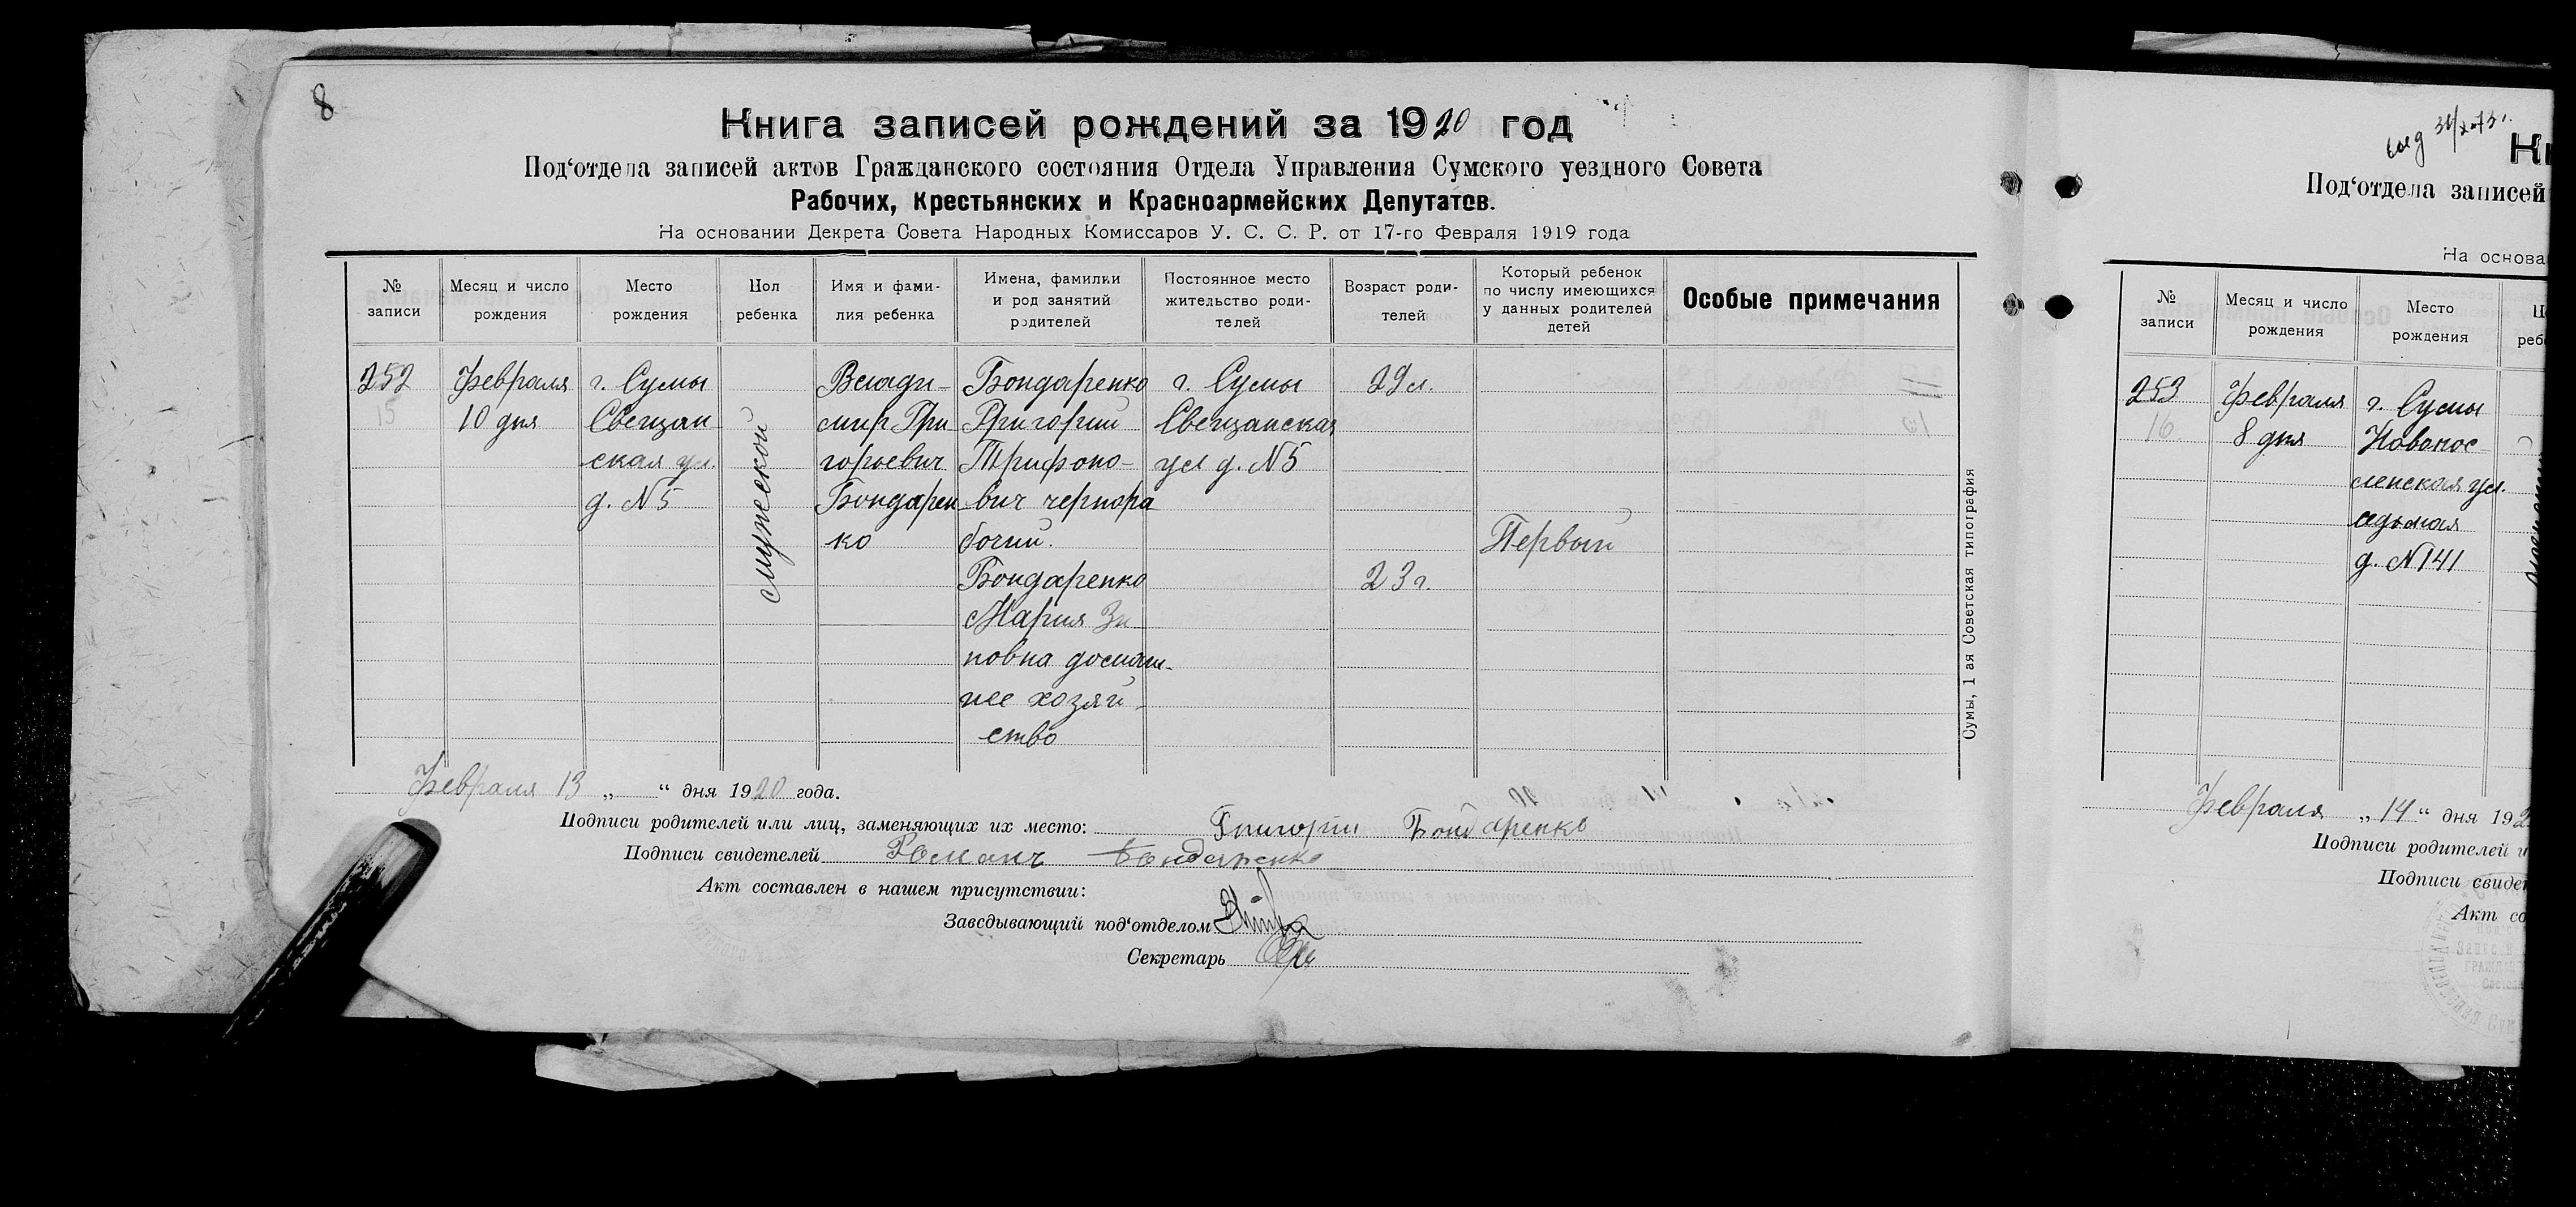 8
Книга записей рождений за 1920 год
Под‘отдела записей актов Гражданского состояния Отдела Управления Сумского уездного Совета
Рабочих, Крестьянских и Красноармейских Депутатов.
На основании Декрета Совета Народных Комиссаров У. С. С. Р. от 17-го Февраля 1919 года
№ записи
Месяц и число рождения
Место рождения
Пол ребенка
Имя и фами-
лия ребенка
Имена, фамилии
и род занятий
родителей
Постоянное место
жительство роди-
телей
Возраст роди-
телей
Который ребенок
по числу имеющихся
у данных родителей
детей
Особые примечания
252
15
Февраля
10 дня
г. Сумы
Свещан
ская ул.
д. №5
мужеской
Влади-
мир Гри
горьевич
Бондарен
ко
Бондаренко
Григорий
Трифоно-
вич чернора
бочий.
Бондаренко
Мария Зи
новна домаш-
нее хозяй-
ство
г. Сумы
Свещанская
ул д. №5
29 л.
23 г.
Первый
Сумы, 1 ая Советская типография
Февраля 13 „ “ дня 1920 года.
Подписи родителей или лиц, заменяющих их место: Григорий Бондаренко
Подписи свидетелей Романъ Бондаренко
Акт составлен в нашем присутствии:
Заведывающий под‘отделом
Секретарь
Кн
Под‘отдела записей
На основа
№ записи
Месяц и число
рождения
Место
рождения
253
16
Февраля
8 дня
г. Сумы
Новопос
ленская ул.
седьмая
д. №141
Февраля „14“ дня 192
Подписи родителей и
Подписи свидет
Акт со